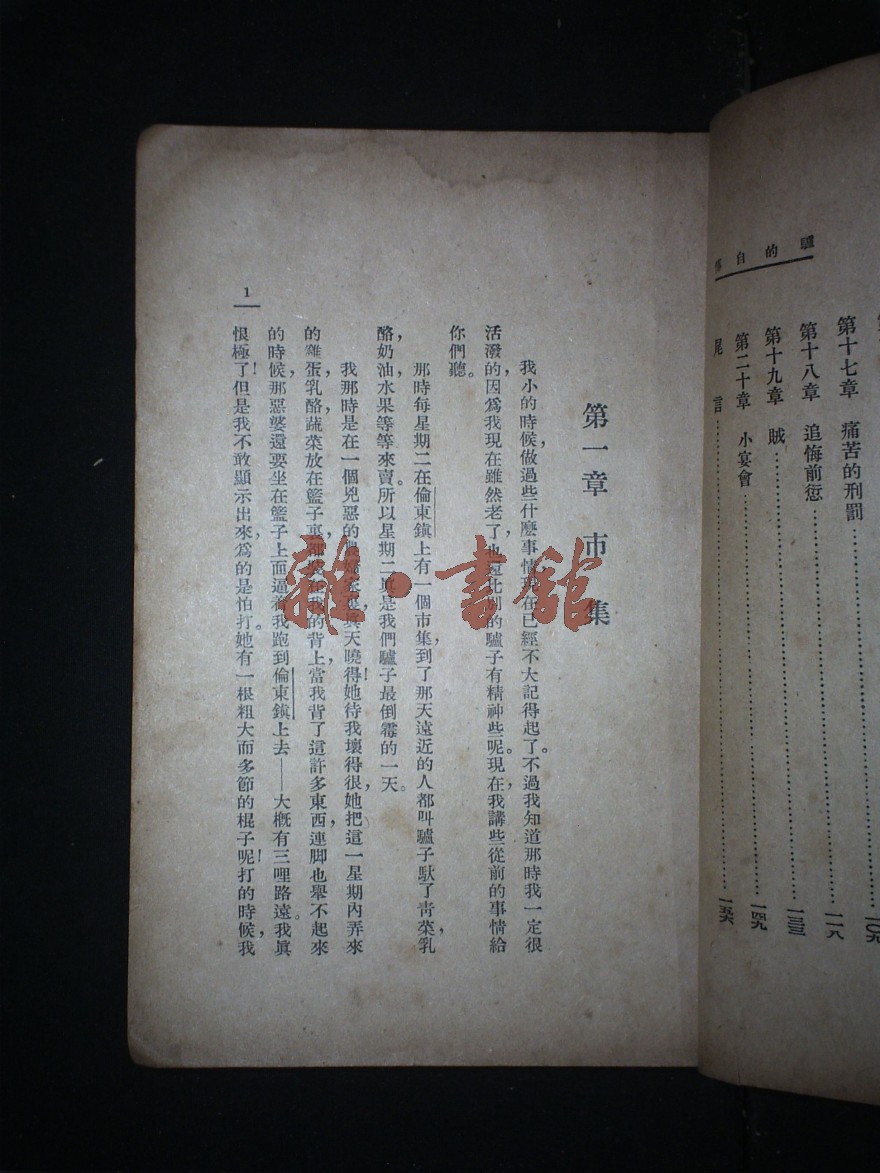 驢的自
第十七章 痛苦的刑罰……一〇九
第十八章 追悔前愆……一一八
第十九章 賊……一三三
第二十章 小宴會……一四九
尾言……一五六
第一章 市集
我小的時候，做過些什麽事情，現在已經不大記得起了。不過我知道那時我一定很
活潑的，因爲我現在雖然老了，也還比別的驢子有精神些呢。現在，我講些從前的事情給
你們聽。
那時每星期二在倫東鎭上有一個市集，到了那天遠近的人都叫驢子馱了青菜，乳
酪，奶油，水果等等來賣。所以星期二眞是我們驢子最倒霉的一天。
我那時是在一個兇惡的 天曉得！她待我壞得很，她把這一星期內弄來
的雞蛋，乳酪，蔬菜放在籃子裏， 我的背上，當我背了這許多東西，連脚也舉不起來
的時候，那惡婆還要坐在籃子上面逼着我跑到倫東鎭上去——大概有三哩路遠。我眞
恨極了！但是我不敢顯示出來，爲的是怕打。她有一根粗大而多節的棍子呢！打的時候，我
1
雜·書館